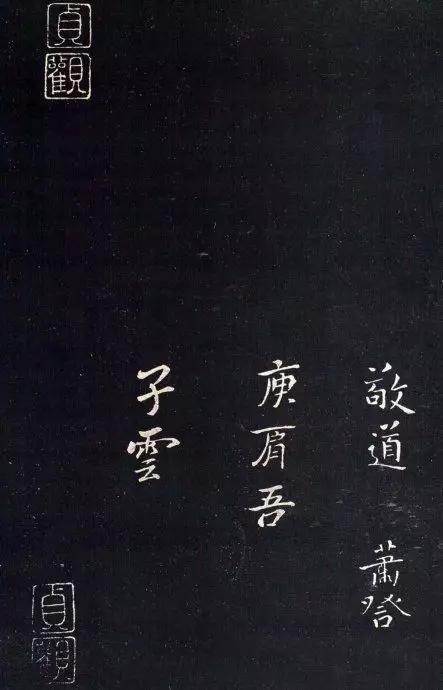 敬道 蕭
庾肩吾
子雲
貞觀
貞觀